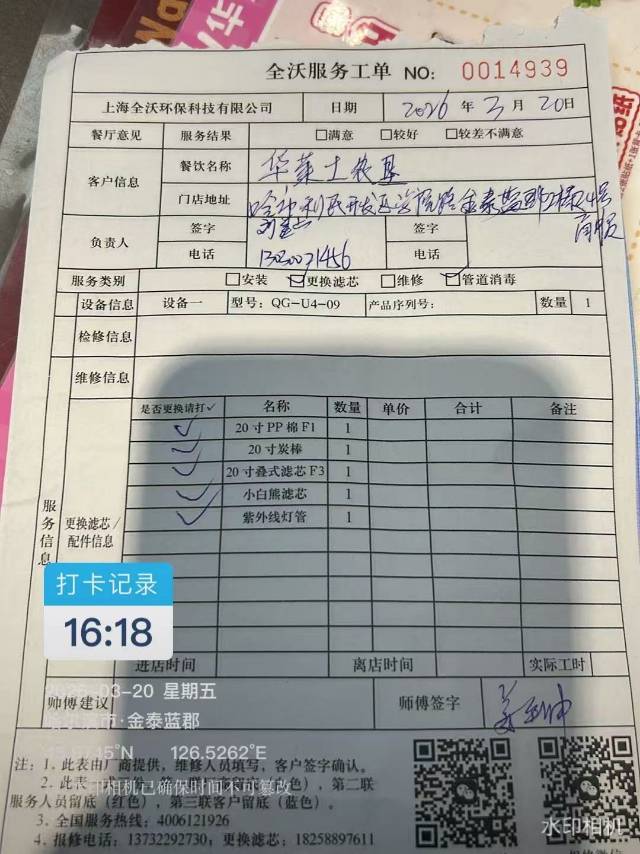 全沃服务工单 NO: 0014939
上海全沃环保科技有限公司 日期 2026 年 3 月 20 日
餐厅意见 服务结果 □满意 □较好 □较差不满意
客户信息 餐饮名称 华莱士
门店地址 哈市利民开发区 金泰蓝郡
负责人 签字 签字
电话 电话
服务类别 □安装 ☑更换滤芯 □维修 ☑管道消毒
设备信息 设备一 型号: QG-U4-09 产品序列号: 数量 1
检修信息
维修信息
服务信息 更换滤芯/配件信息
是否更换请打✓ 名称 数量 单价 合计 备注
✓ 20寸PP棉F1 1
✓ 20寸炭棒 1
✓ 20寸叠式滤芯F3 1
✓ 小白熊滤芯 1
✓ 紫外线灯管 1
打卡记录
16:18
进店时间 离店时间 实际工时
2026-03-20 星期五
师傅建议 师傅签字
哈尔滨市·金泰蓝郡
126.5262°E
注: 1. 此表由厂商提供, 维修人员填写, 客户签字确认。
2. 此表
相机已确保时间不可篡改
第二联
服务人员留底 (红色), 第三联客户留底 (蓝色)。
3. 全国服务热线: 4006121926
4. 报修电话: 13732292730, 更换滤芯: 18258897611
水印相机